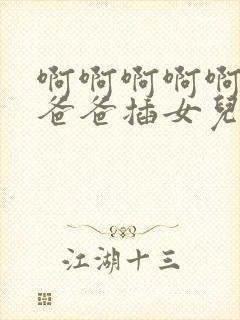 啊啊啊啊啊
爸爸插女兒
江湖十三